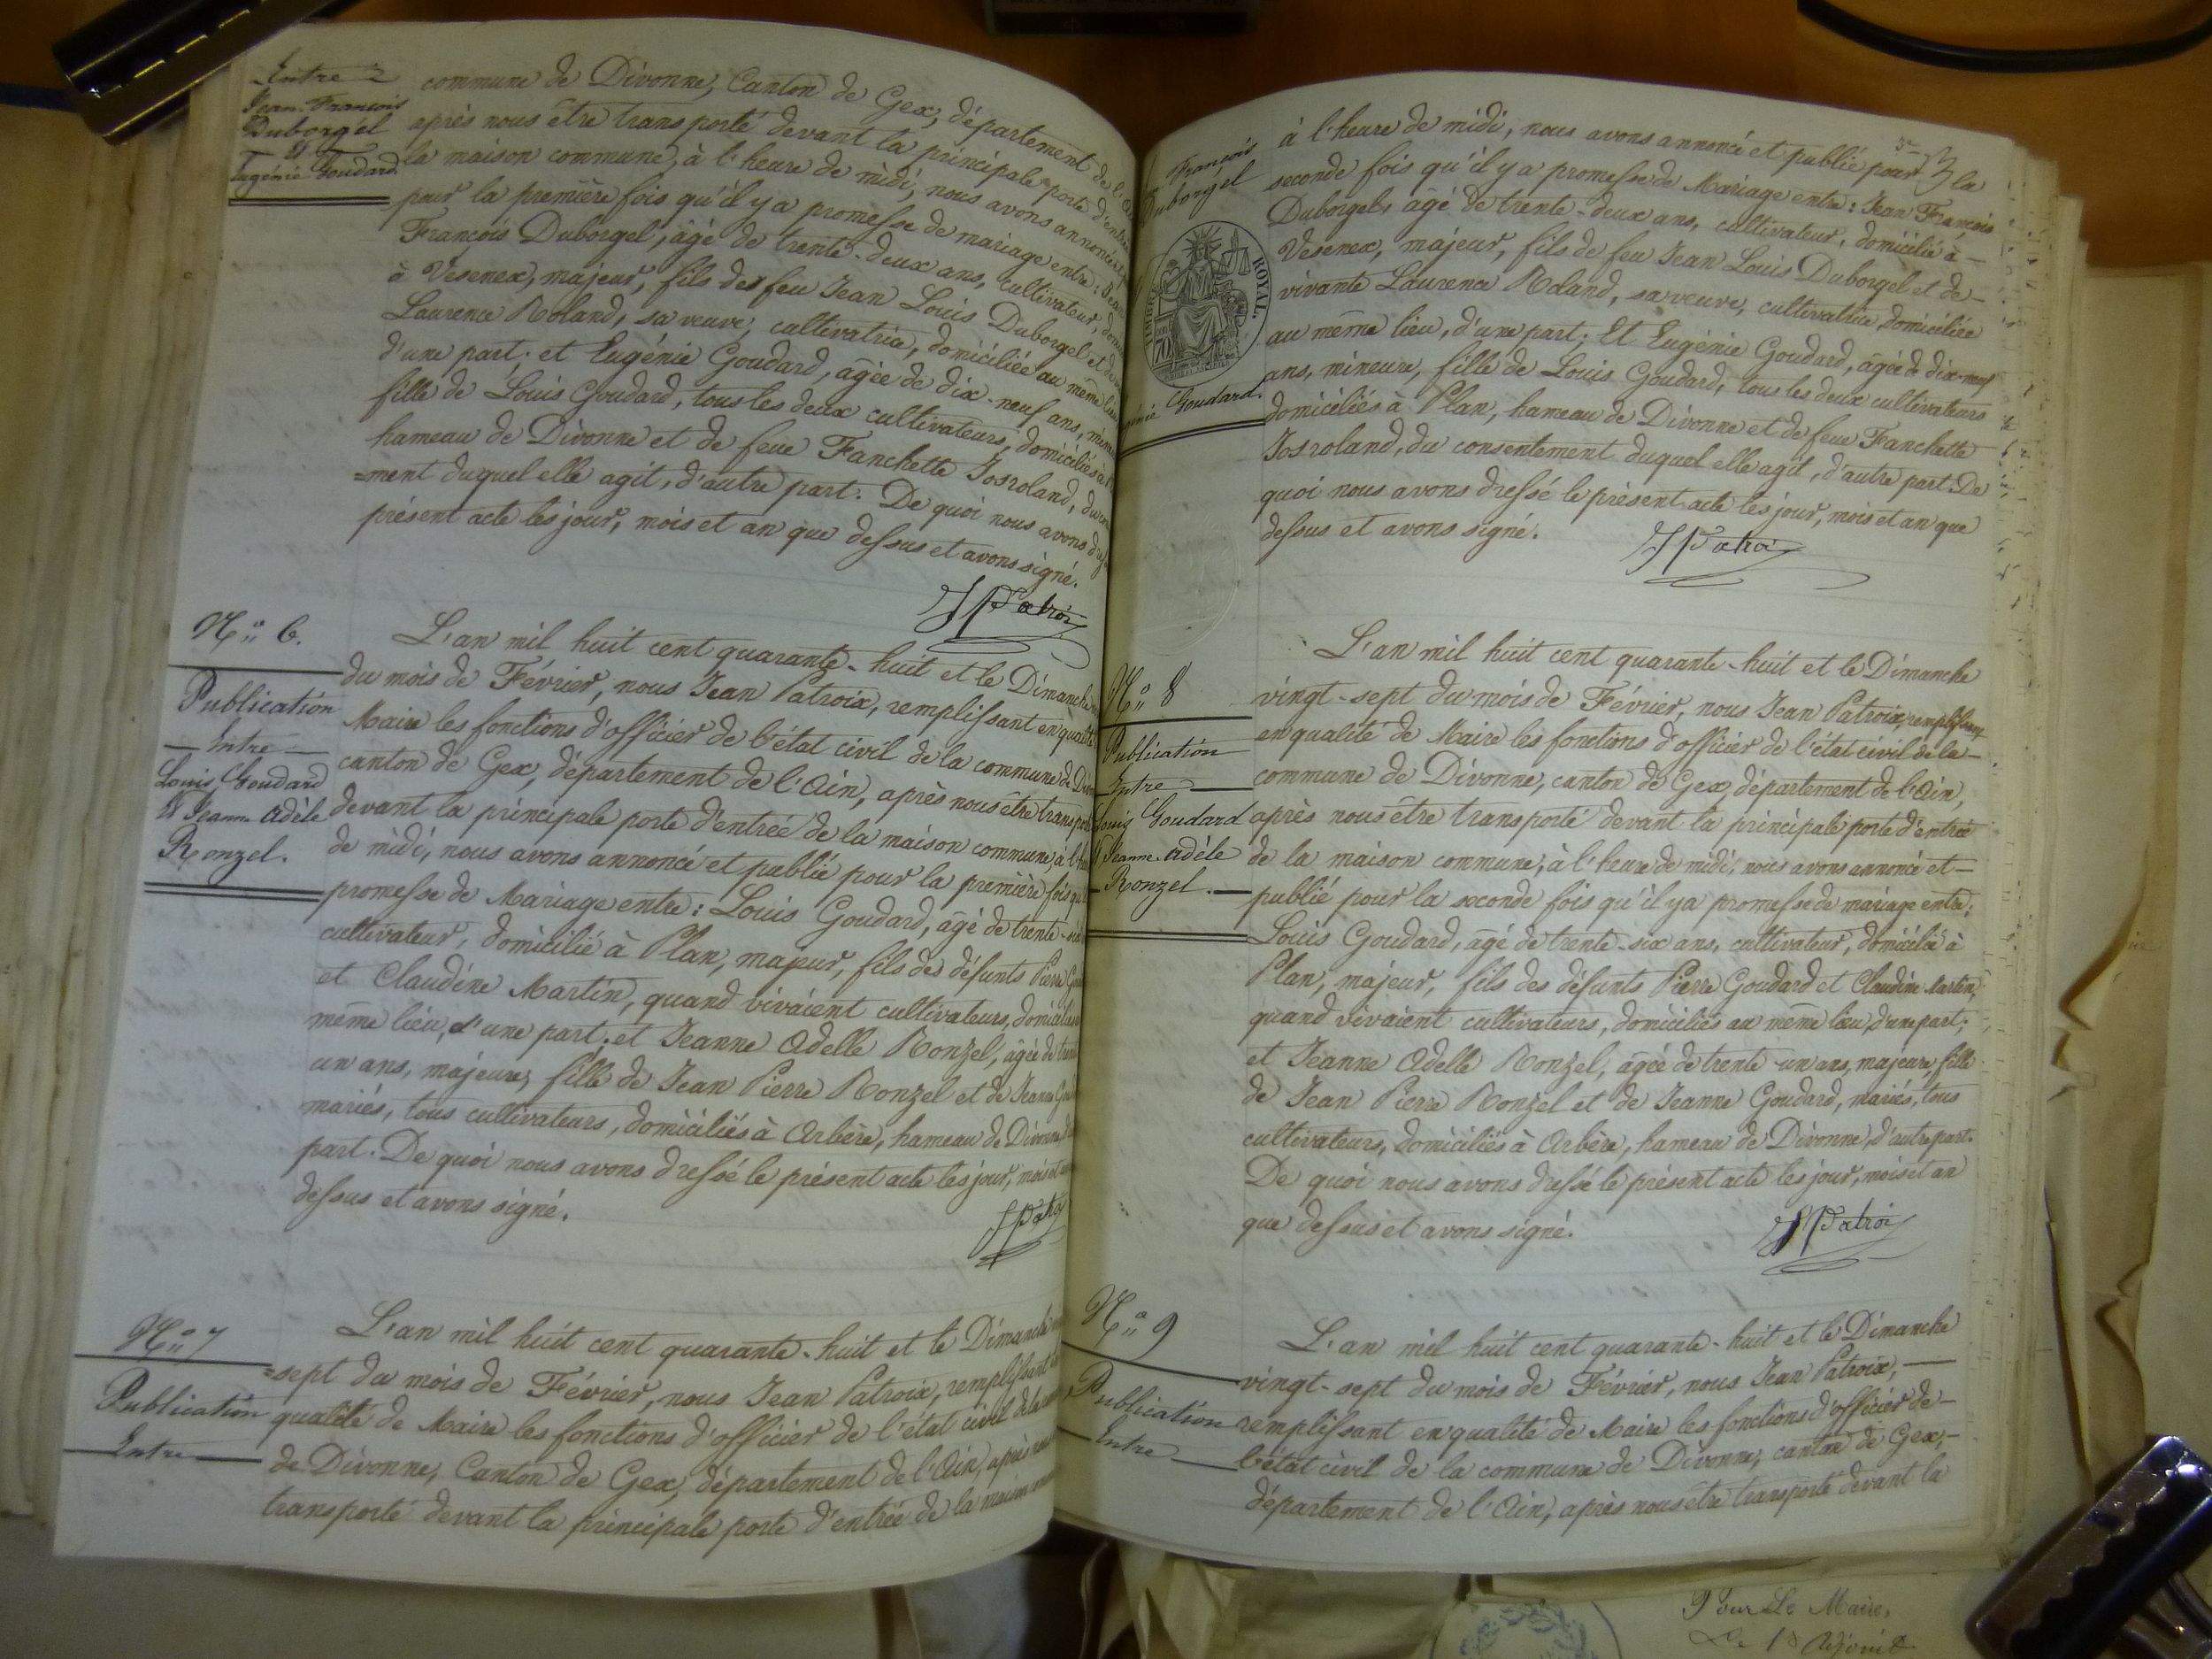 Entre
Jean François
Duborgel
et
Eugénie Goudard
commune de Divonne, Canton de Gex, département de
après nous être transporté devant la principale porte
la maison commune, à l'heure de midi, nous avons annoncé
pour la première fois qu'il y a promesse de mariage entre: Jean
François Duborgel, âgé de trente-deux ans, cultivateur,
à Vesenex, majeur, fils des feu Jean Louis Duborgel et
Laurence Roland, sa veuve, cultivatrice, domiciliée au même lieu
d'une part; et Eugénie Goudard, âgée de dix-neuf ans,
fille de Louis Goudard, tous les deux cultivateurs, domiciliés à
hameau de Divonne et de feue Fanchette Josroland,
=ment duquel elle agit, d'autre part. De quoi nous avons
présent acte les jour, mois et an que dessus et avons signé.
JPatroix
N° 6.
Publication
Entre
Louis Goudard
et Jeanne Adèle
Ronzel.
L'an mil huit cent quarante-huit et le Dimanche
du mois de Février, nous Jean Patroix, remplissant en qualité
Maire les fonctions d'officier de l'état civil de la commune de
canton de Gex, département de l'Ain, après nous être
devant la principale porte d'entrée de la maison commune, à
de midi, nous avons annoncé et publié pour la première fois
promesse de Mariage entre: Louis Goudard, âgé de trente-
cultivateur, domicilié à Plan, majeur, fils des défunts Pierre
et Claudine Martin, quand vivaient cultivateurs,
même lieu, d'une part; et Jeanne Adelle Ronzel, âgée de
un ans, majeure, fille de Jean Pierre Ronzel et de Jeanne
mariés, tous cultivateurs, domiciliés à Arbère, hameau de Divonne
part. De quoi nous avons dressé le présent acte les jour, mois et
dessus et avons signé.
JPatroix
N° 7
Publication
Entre
L'an mil huit cent quarante-huit et le Dimanche
=sept du mois de Février, nous Jean Patroix, remplissant
qualité de Maire les fonctions d'officier de l'état civil de la
de Divonne, Canton de Gex, département de l'Ain, après
transporté devant la principale porte d'entrée de la maison
3
François
Duborgel
TIMBRE ROYAL.
70
Goudard.
à l'heure de midi, nous avons annoncé et publié pour la
seconde fois qu'il y a promesse de Mariage entre: Jean François
Duborgel, âgé de trente-deux ans, cultivateur, domicilié à
Vesenex, majeur, fils de feu Jean Louis Duborgel et de
vivante Laurence Roland, sa veuve, cultivatrice domiciliée
au même lieu, d'une part; Et Eugénie Goudard, âgée de dix-neuf
ans, mineure, fille de Louis Goudard, tous les deux cultivateurs
domiciliés à Plan, hameau de Divonne et de feue Fanchette
Josroland, du consentement duquel elle agit, d'autre part. De
quoi nous avons dressé le présent acte les jour, mois et an que
dessus et avons signé.
JPatroix
N° 8
Publication
Entre
Louis Goudard
Jeanne Adèle
Ronzel.
L'an mil huit cent quarante-huit et le Dimanche
vingt-sept du mois de Février, nous Jean Patroix, remplissant
en qualité de Maire les fonctions d'officier de l'état civil de la
commune de Divonne, canton de Gex, département de l'Ain,
après nous être transporté devant la principale porte d'entrée
de la maison commune, à l'heure de midi, nous avons annoncé et
publié pour la seconde fois qu'il y a promesse de mariage entre:
Louis Goudard, âgé de trente-six ans, cultivateur, domicilié à
Plan, majeur, fils des défunts Pierre Goudard et Claudine Martin,
quand vivaient cultivateurs, domiciliés au même lieu, d'une part;
et Jeanne Adelle Ronzel, âgée de trente-un ans, majeure, fille
de Jean Pierre Ronzel et de Jeanne Goudard, mariés, tous
cultivateurs, domiciliés à Arbère, hameau de Divonne, d'autre part.
De quoi nous avons dressé le présent acte les jour, mois et an
que dessus et avons signé.
JPatroix
N° 9
Publication
Entre
L'an mil huit cent quarante-huit et le Dimanche
vingt-sept du mois de Février, nous Jean Patroix,
remplissant en qualité de Maire les fonctions d'officier de
l'état civil de la commune de Divonne, canton de Gex,
département de l'Ain, après nous être transporté devant la
Pour Le Maire,
Le 1er Adjoint